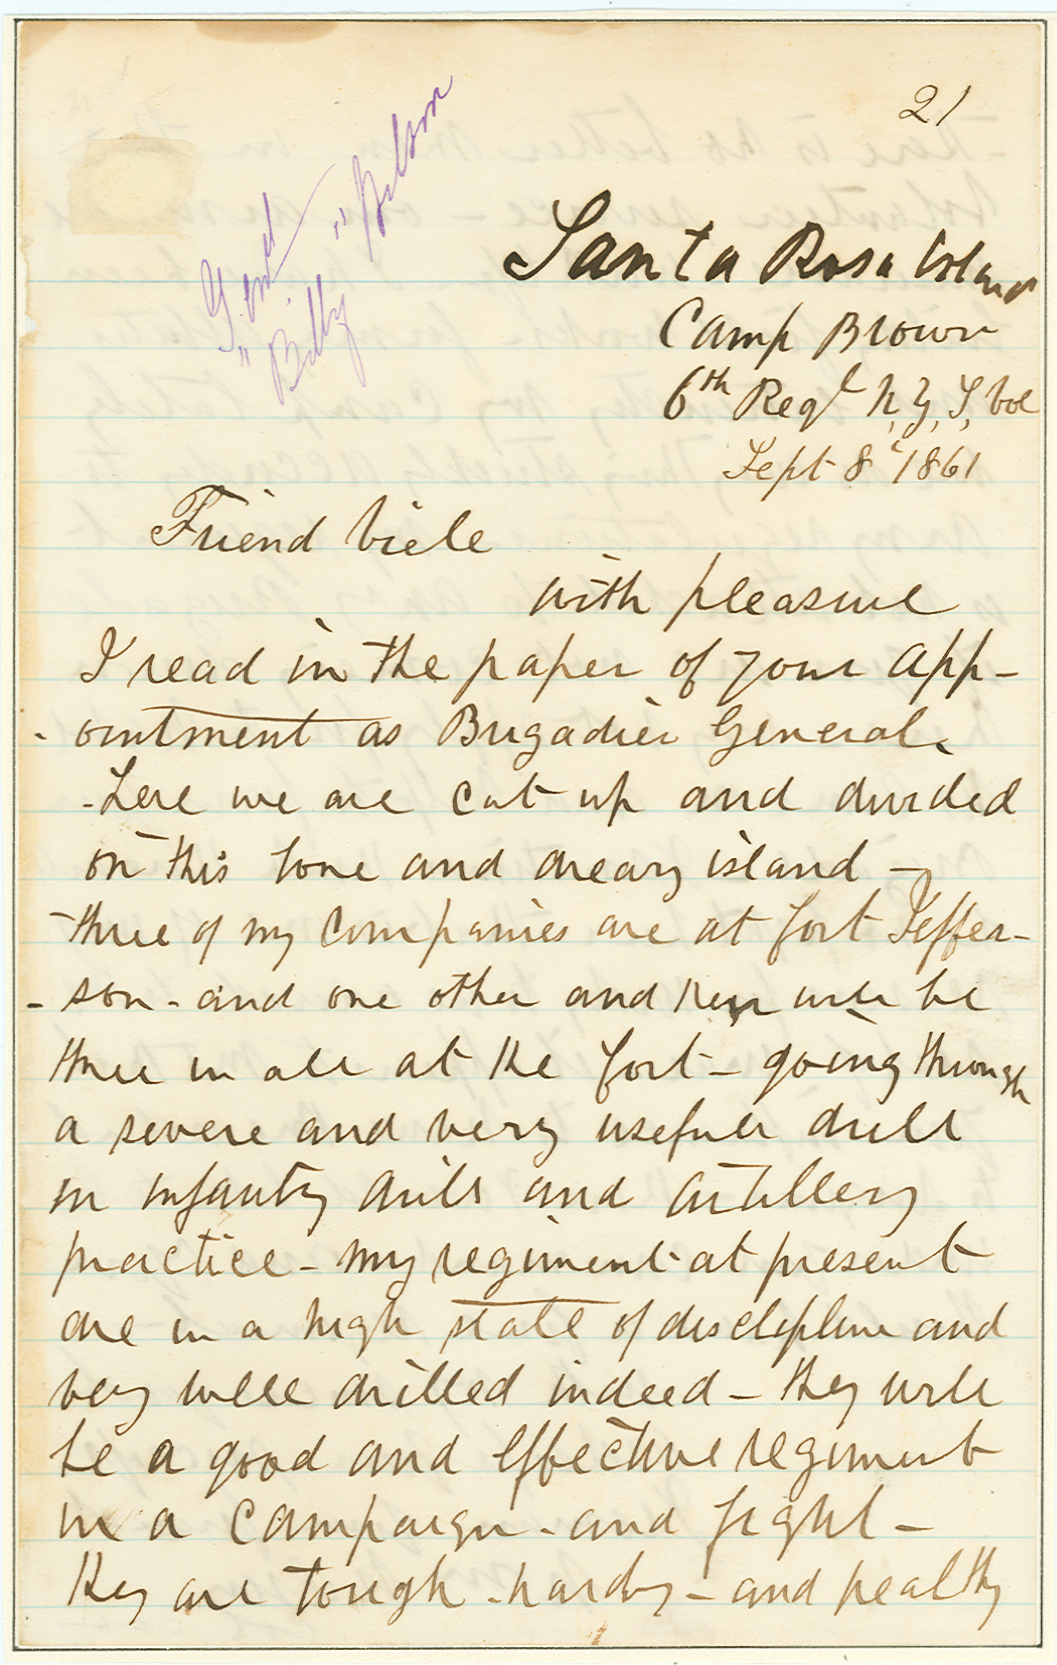 21
Genl
"Billy" Wilson
Santa Rosa Island
Camp Brown
6th Regt N. Y. S. Vol
Sept 8 1861
Friend Viele
with pleasure
I read in the paper of your app-
-ointment as Brigadier General.
-Here we are cut up and divided
on this lone and dreary island -
-three of my Companies are at fort Jeffer-
- son - and one other and then will be
three in all at the fort - going through
a severe and very usefull drill
in infantry drill and artillery
practice - my regiment at present
are in a high state of disclipline and
very well drilled indeed - they will
be a good and effective regiment
in a Campaign - and fight -
they are tough - hardy - and healthy